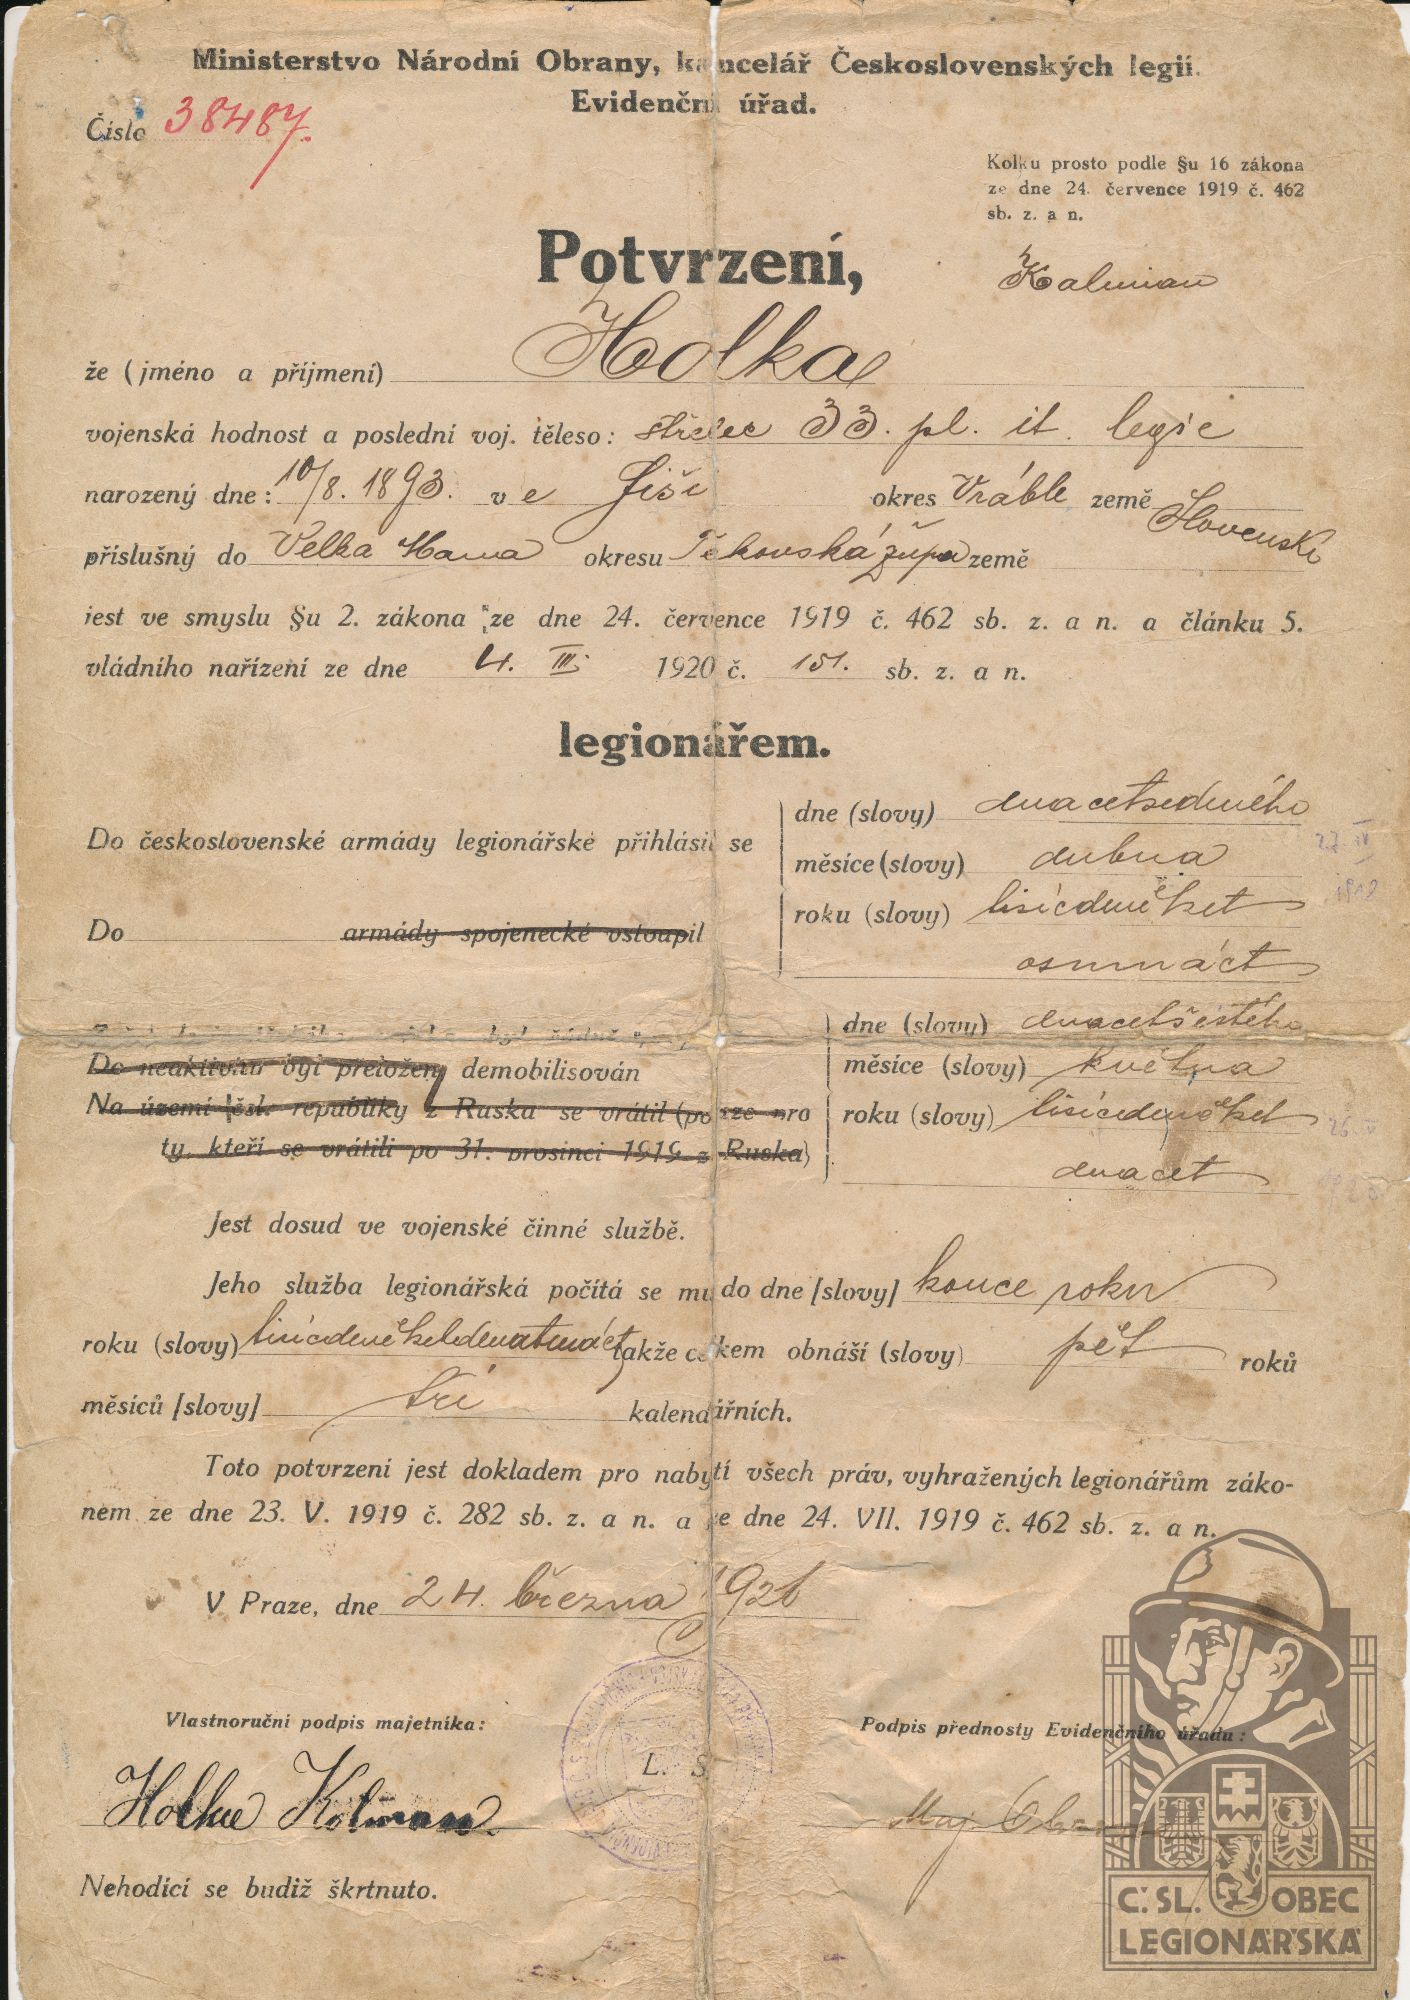 Ministerstvo Národní Obrany, kancelář Československých legií.
Evidenční úřad.
Číslo 38487.
Kolku prosto podle §u 16 zákona
ze dne 24. července 1919 č. 462
sb. z. a n.
Potvrzení,
Kalman
že (jméno a příjmení) Holka
vojenská hodnost a poslední voj. těleso: střelec 33. pl. it. legie
narozený dne: 10/8. 1893. v e Jiši okres Vráble země Slovensko
příslušný do Velka okresu Těkovská župa země
jest ve smyslu §u 2. zákona ze dne 24. července 1919 č. 462 sb. z. a n. a článku 5.
vládního nařízení ze dne 4. III. 1920 č. 151. sb. z. a n.
legionářem.
Do československé armády legionářské přihlásil se
dne (slovy) dvacetsedmého
měsíce (slovy) dubna
27. IV
1918
Do armády spojenecké vstoupil
roku (slovy) tisícdevětset
osmnáct
dne (slovy) dvacetšestého
Do neaktivity byl přeložen, demobilisován
měsíce (slovy) května
Na území čsl. republiky z Ruska se vrátil (pouze pro
ty, kteří se vrátili po 31. prosinci 1919 z Ruska)
roku (slovy) tisícdevětset
dvacet
26. V
1920
Jest dosud ve vojenské činné službě.
Jeho služba legionářská počítá se mu do dne [slovy] konce roku
roku (slovy) tisícdevětsetdevatenáct takže celkem obnáší (slovy) pět roků
měsíců [slovy] tři kalendářních.
Toto potvrzení jest dokladem pro nabytí všech práv, vyhražených legionářům záko-
nem ze dne 23. V. 1919 č. 282 sb. z. a n. a ze dne 24. VII. 1919 č. 462 sb. z. a n.
V Praze, dne 24. března 1921
Vlastnoruční podpis majetníka:
Podpis přednosty Evidenčního úřadu:
L. S.
Holka Kolman
Maj
Nehodící se budiž škrtnuto.
Č. SL. OBEC
LEGIONÁŘSKÁ